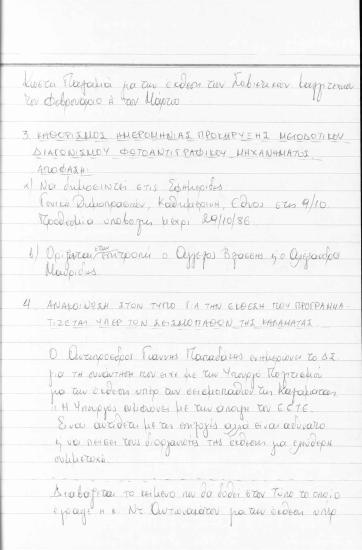 Κώστα Παγωμένου για την έκθεση των Σοβιετικών καλλιτεχνών
τον Φεβρουάριο ή τον Μάρτιο
3. ΚΑΘΟΡΙΣΜΟΣ ΗΜΕΡΟΜΗΝΙΑΣ ΠΡΟΚΗΡΥΞΗΣ ΜΕΙΟΔΟΤΙΚΟΥ
ΔΙΑΓΩΝΙΣΜΟΥ ΦΩΤΟΑΝΤΙΓΡΑΦΙΚΟΥ ΜΗΧΑΝΗΜΑΤΟΣ
ΑΠΟΦΑΣΗ:
α) Να δημοσιευτεί στις Εφημερίδες
Γενική Δημοπρασιών, Καθημερινή, Εθνος στις 9/10.
Προθεσμία υποβολής μέχρι 29/10/86
β) Ορίζεται στην επιτροπή ο Αγγελος Βλάσσης η ο Αλέξανδρος
4. ΑΝΑΚΟΙΝΩΣΗ ΣΤΟΝ ΤΥΠΟ ΓΙΑ ΤΗΝ ΕΚΘΕΣΗ ΠΟΥ ΠΡΟΓΡΑΜΜΑ-
ΤΙΖΕΤΑΙ ΥΠΕΡ ΤΩΝ ΣΕΙΣΜΟΠΑΘΩΝ ΤΗΣ ΚΑΛΑΜΑΤΑΣ
Ο Αντιπρόεδρος Γιάννης Παπαδάκης ενημερώνει το ΔΣ
για τη συνάντηση που είχε με την Υπουργό Πολιτισμού
για την έκθεση υπέρ των σεισμοπαθών της Καλαμάτας
Η Υπουργός συμφώνησε με την άποψη του ΕΕΤΕ.
Είναι αντίθετη με τις επιλογές αλλά είναι αδύνατο
η να πείσει τους διοργανωτές της έκθεσης για ελεύθερη
συμμετοχή.
Διαβάζεται το κείμενο που θα δοθεί στον Τύπο το οποίο
έγραψε η κ. Ντ για την έκθεση υπέρ